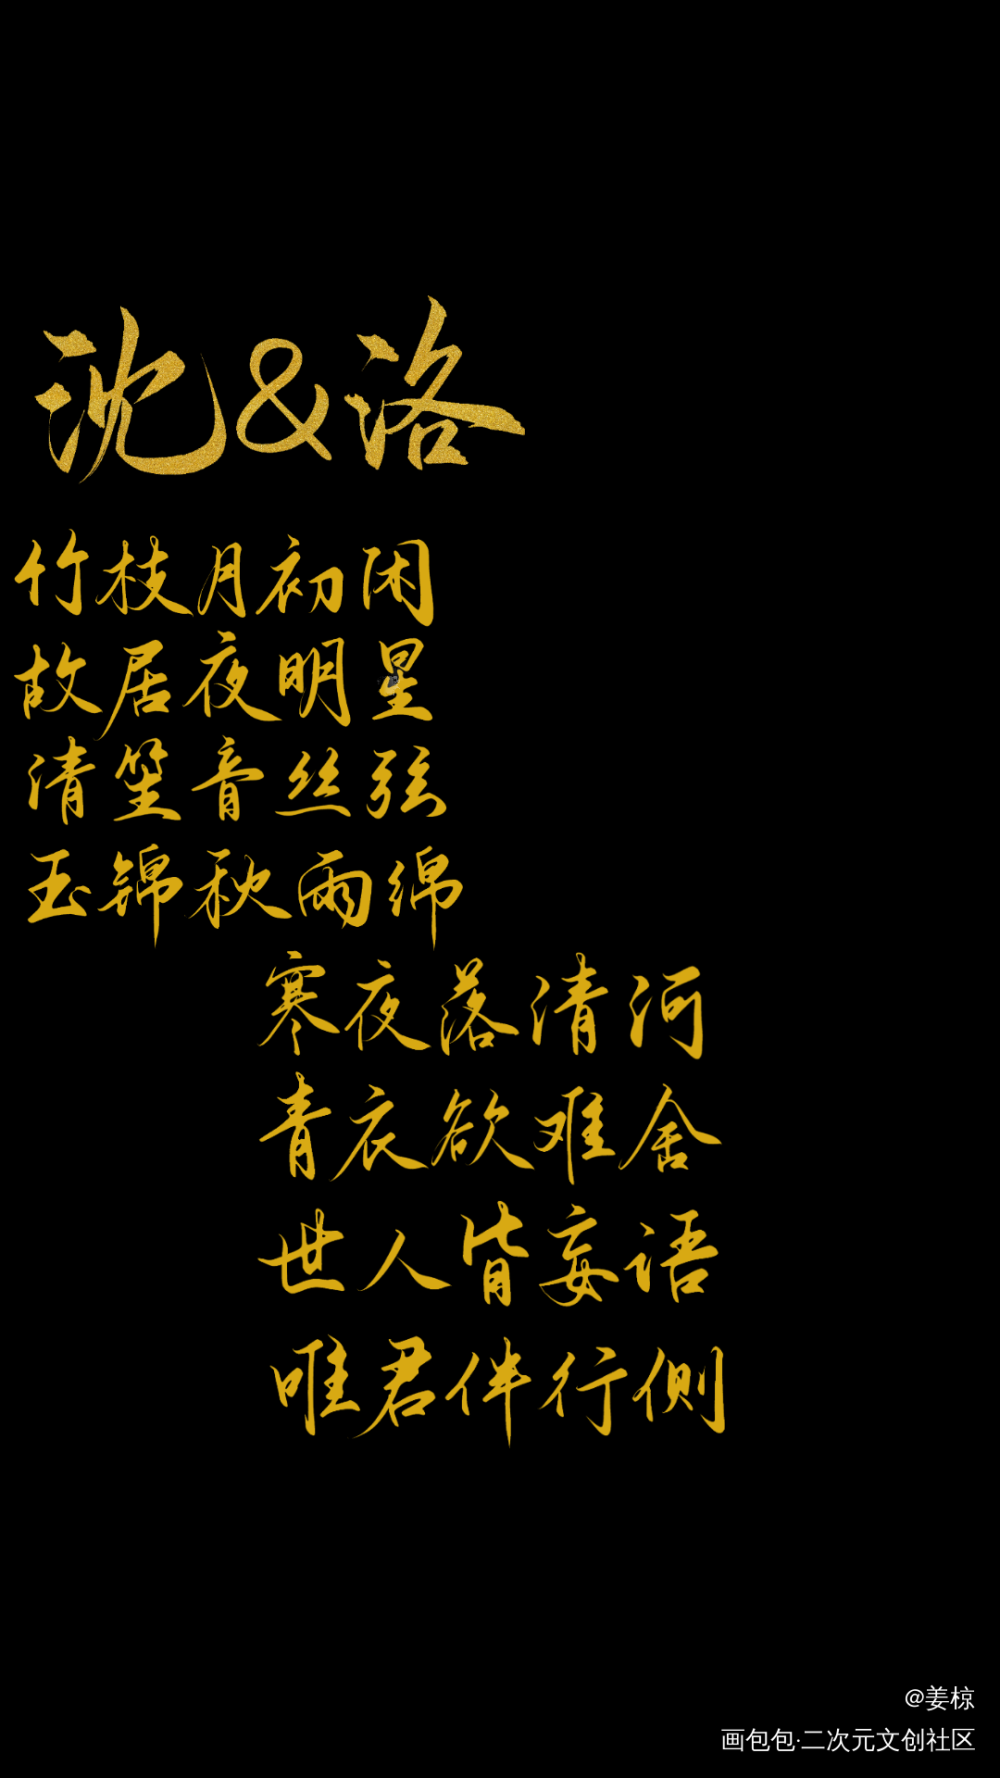 沈&洛
竹枝月初闭
故居夜明星
清笙音丝弦
玉锦秋雨绵
寒夜落清河
青衣欲难舍
世人皆妄语
唯君伴行侧
@姜椋
画包包·二次元文创社区